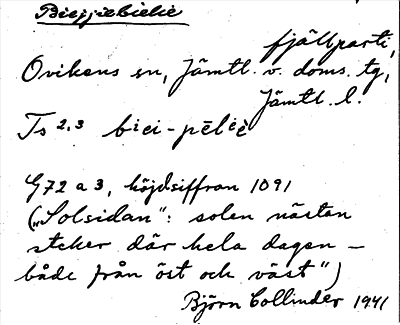 Biejjiebielie
fjällparti,
Ovikens sn, Jämtl. v. doms. tg,
Jämtl. l.
Ts 2,3 biei-pēliè
G72 a 3, höjdsiffran 1091
("Solsidan": solen nästan
steker där hela dagen –
både från öst och väst")
Björn Collinder 1941